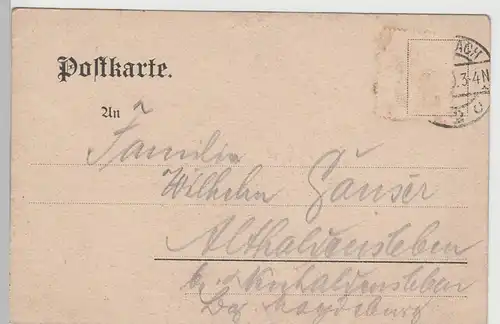 ACH
3-4N
Postkarte.
An
Familie
Wilhelm Ganser
Althaldensleben
b. Neuhaldensleben
Bez. Magdeburg